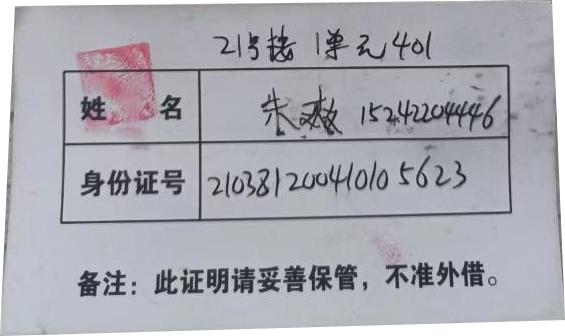 21号楼 1单元401
姓名 朱爽 15242204446
身份证号 210381200410105623
备注：此证明请妥善保管，不准外借。